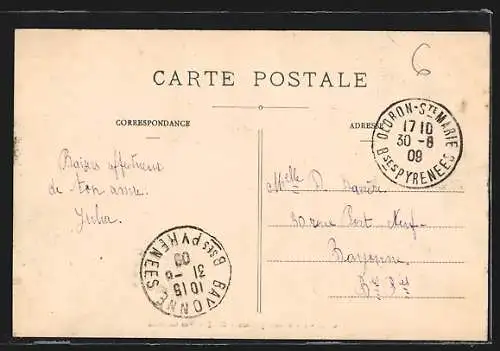 6
CARTE POSTALE
CORRESPONDANCE
ADRESSE
OLORON-STE MARIE
17 10
30 -8
09
BSES PYRENEES
Baisers affectueux
de ton amie.
Mlle D.
30 rue Port Neuf
Bayonne
BAYONNE
10 15
31 -8
09
BSES PYRENEES